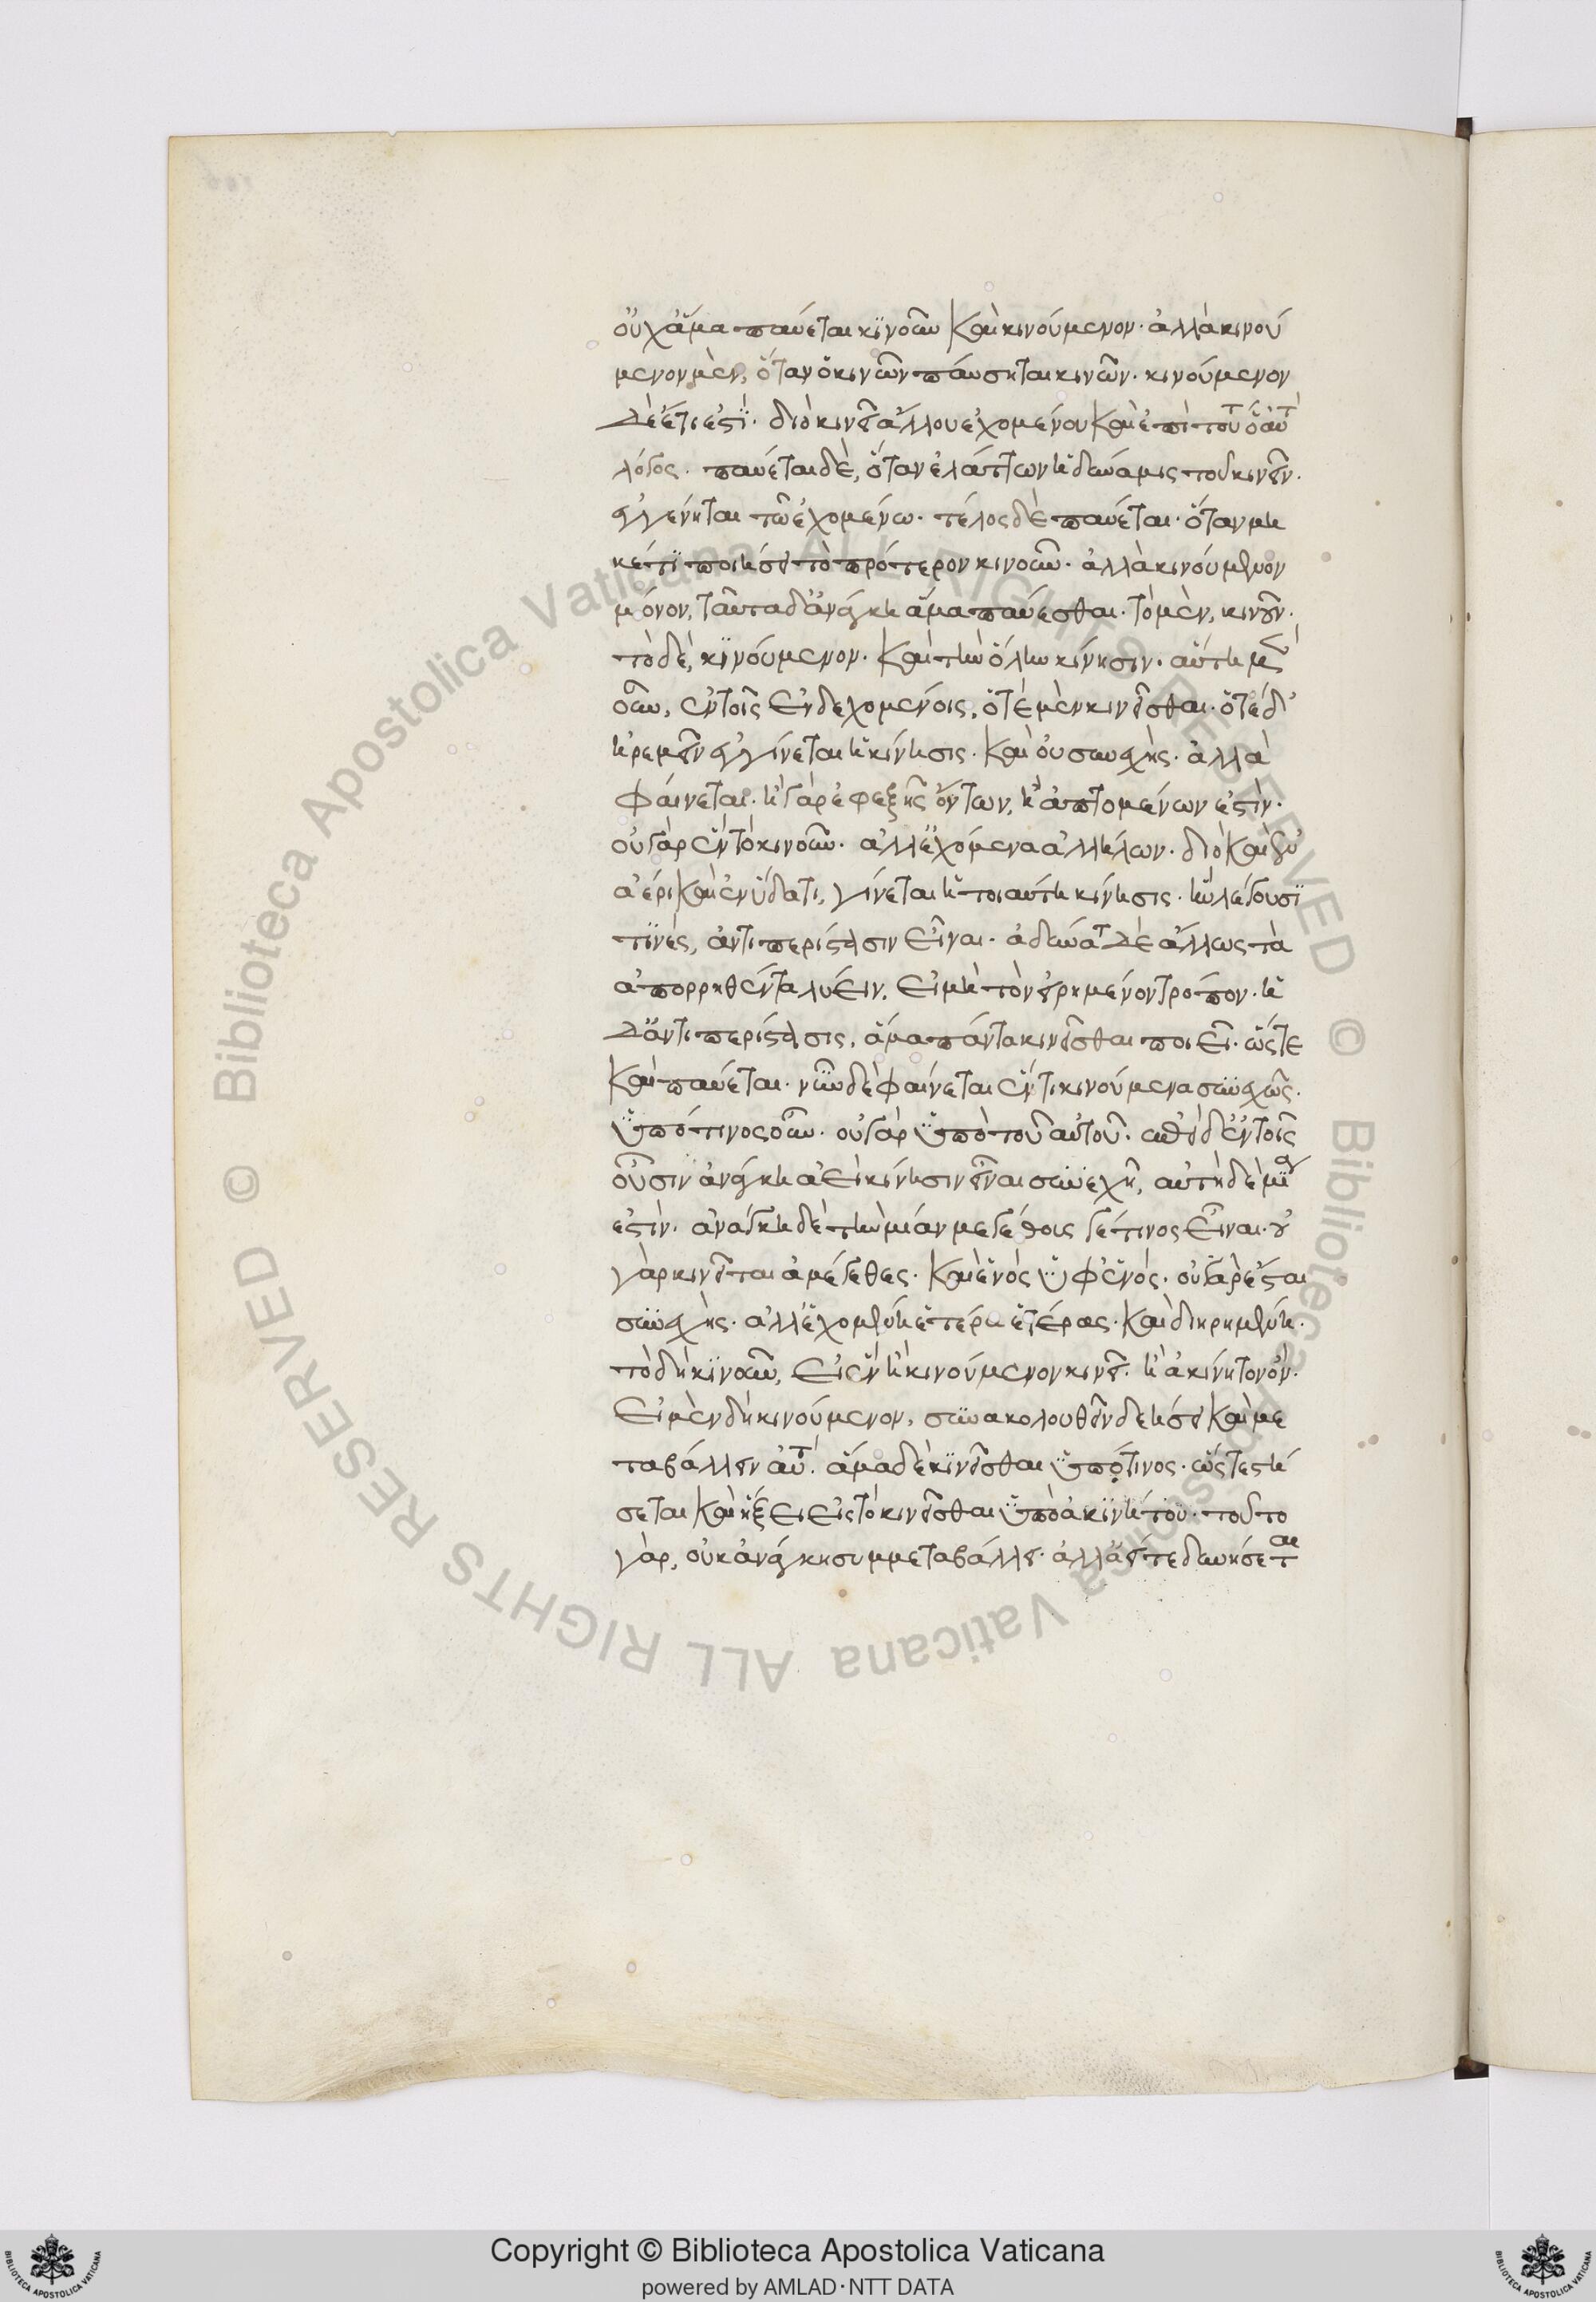 οὐχ ἅμα παύεται κινοῦν καὶ κινούμενον· ἀλλὰ κινού
μενον μὲν, ὅταν ὁ κινῶν παύσηται κινῶν. κινούμενον
δὲ ἔτι ἐστί· διὸ κινεῖ ἄλλου ἐχομένου καὶ ἐπὶ τούτ ὁ αὐτ
λόγος. παύεται δὲ, ὅταν ἐλάττων ἡ δύναμις τοῦ κινεῖν.
ἐγγένηται τῶ ἐχομένω. τέλος δὲ παύεται. ὅταν μη
κέτι ποιήσει τὸ πρότερον κινοῦν. ἀλλὰ κινούμενον
μόνον, ταῦτα δ' ἀνάγκη ἅμα παύεσθαι. τὸ μὲν, κινεῖν.
τὸ δὲ, κινούμενον. καὶ τὴν ὅλην κίνησιν. αὕτη μὲν
οὖν, ἐν τοῖς ἐνδεχομένοις, ὁτὲ μὲν κινεῖσθαι. ὁτὲ δ'
ἠρεμεῖν ἐγγίνεται ἡ κίνησις. καὶ οὐ συνεχὴς. ἀλλὰ
φαίνεται. ἢ γὰρ ἐφεξῆς ὄντων, ἢ ἁπτομένων ἐστὶν.
οὐ γὰρ ἓν τὸ κινοῦν. ἀλλ' ἐχόμενα ἀλλήλων. διὸ καὶ ἐν
ἀέρι καὶ ἐν ὕδατι, γίνεται ἡ τοιαύτη κίνησις. ἣν λέγουσί
τινές, ἀντιπερίστασιν εἶναι. ἀδύνατ δὲ ἄλλως τὰ
ἀπορρηθέντα λύειν, εἰ μὴ τὸν εἰρημένον τρόπον. ἡ
δ' ἀντιπερίστασις, ἅμα πάντα κινεῖσθαι ποιεῖ. ὥστε
καὶ παύεται. νῦν δὲ φαίνεται ἕν τι κινούμενα συνεχῶς.
ὑπό τινος οὖν. οὐ γὰρ ὑπὸ τοῦ αὐτοῦ. ἐπεὶ δ' ἐν τοῖς
οὖσιν ἀνάγκη ἀεὶ κίνησιν εἶναι συνεχῆ, αὐτὴ δὲ μία
ἐστὶν. ἀνάγκη δὲ τὴν μίαν μεγέθους γέ τινος εἶναι. οὐ
γὰρ κινεῖται ἀμέγεθες. καὶ ἑνὸς ὑφ' ἑνός. οὐ γὰρ ἔσται
συνεχὴς. ἀλλ' ἐχομένη ἑτέρα ἑτέρας. καὶ διῃρημένη.
τὸ δὴ κινοῦν, εἰ ἓν ἢ κινούμενον κινεῖ. ἢ ἀκίνητον ὄν.
εἰ μὲν δὴ κινούμενον, συνακολουθεῖν δεήσει καὶ με
ταβάλλειν αὐτ. ἅμα δὲ κινεῖσθαι ὑπό τινος. ὥστε στή
σεται καὶ ἥξει εἰς τὸ κινεῖσθαι ὑπὸ ἀκινήτου. τοῦτο
γὰρ, οὐκ ἀνάγκη συμμεταβάλλειν. ἀλλ' ἀεί τε δυνήσεται